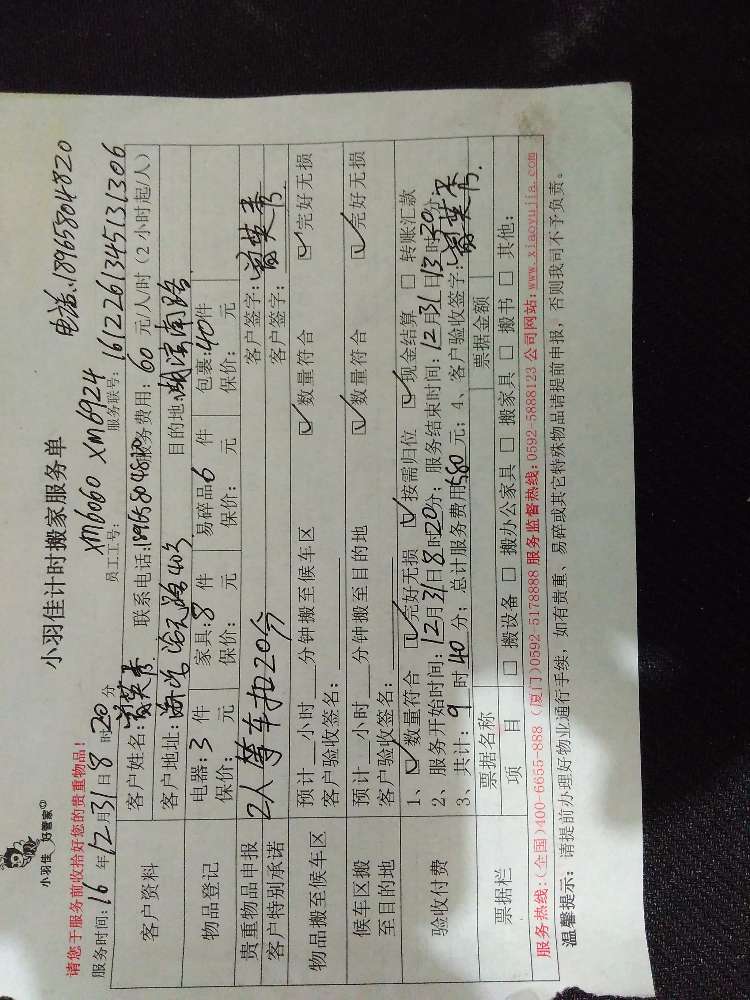 小羽佳 好管家
小羽佳计时搬家服务单
电话:18965804820
请您于服务前收拾好您的贵重物品!
XM6060 XM6924
服务时间:16年12月31日8时20分 员工工号: 服务联号:1612261345131306
客户资料 客户姓名: 联系电话:18965804820 服务费用:60元/人/时(2小时起/人)
客户地址: 403 目的地:湖滨南路
物品登记 电器:3件 家具:8件 易碎品6件 包裹:40件
保价: 元 保价: 元 保价: 元 保价: 元
贵重物品申报 2人等车扣20分 客户签字:
客户特别承诺 客户签字:
物品搬至候车区 预计__小时__分钟搬至候车区 ☑数量符合 ☑完好无损
客户验收签名:
候车区搬至目的地 预计__小时__分钟搬至目的地 ☑数量符合 ☑完好无损
客户验收签名:
验收付费 1、☑数量符合 ☑完好无损 ☑按需归位 ☑现金结算 □转账汇款
2、服务开始时间:12月31日8时20分;服务结束时间:12月31日13时20分
3、共计:9时40分;总计服务费用580元;4、客户验收签字:
票据栏 票据名称 票据金额
项目 □搬设备 □搬办公家具 □搬家具 □搬书 □其他:
服务热线:(全国)400-6655-888 (厦门)0592-5178888 服务监督热线:0592-5888123 公司网站:www.xiaoyujia.com
温馨提示:请提前办理好物业通行手续,如有贵重、易碎或其它特殊物品请提前申报,否则我司不予负责。